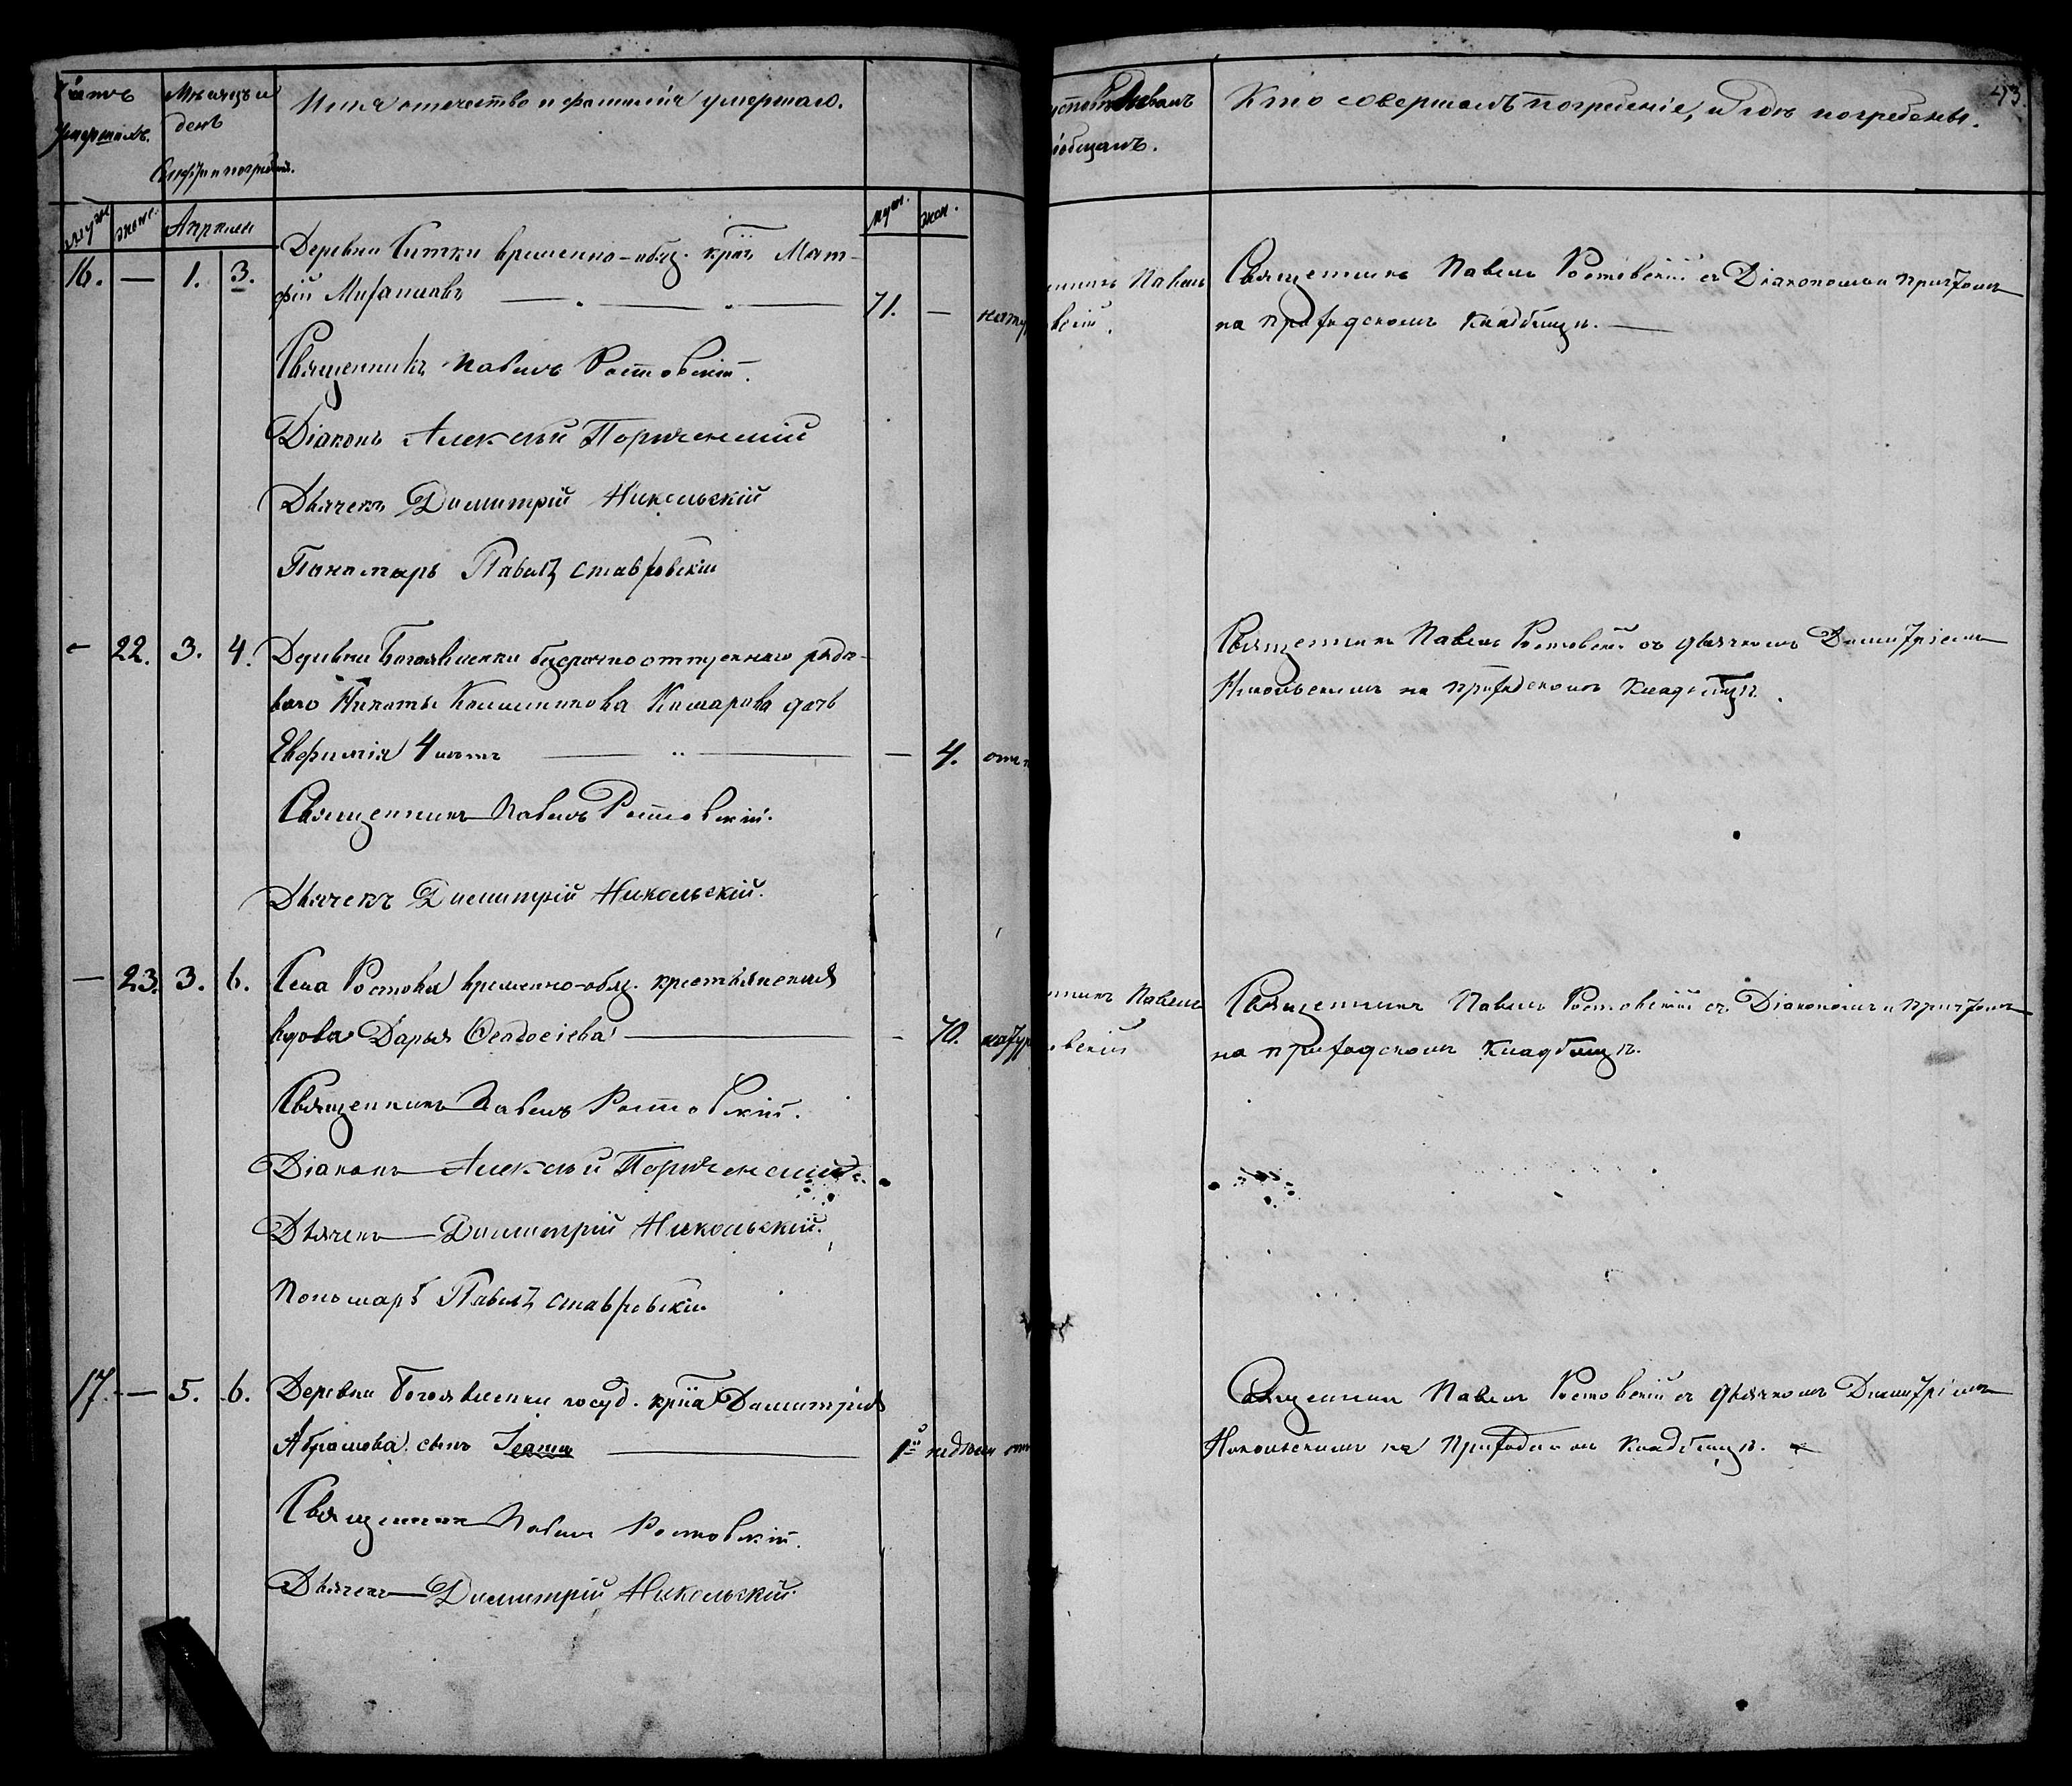 Счетъ умершихъ.
Мѣсяцъ и день
Смерти и погребенія.
Имя отечество и фамилія умершаго.
муж. жен. Апрѣля муж. жен.
16. — 1. 3. Деревни временно-обяз. крна Мат-
фій 71. —
Священникъ Павелъ Ростовскій.
Діаконъ Алексѣй
Дьячекъ Димитрій Никольскій
Пономарь Павелъ Ставровскій
22. 3. 4. Деревни Богоявленки безсрочноотпускнаго рядо-
ваго Никиты Комарова дочь
Евфимія 4 лѣтъ — 4.
Священникъ Павелъ Ростовскій.
Дьячекъ Димитрій Никольскій.
— 23. 3. 6. Села Ростова временно-обяз. крестьянская
вдова Дарья Ѳеодосіева — 70.
Священникъ Павелъ Ростовскій.
Діаконъ Алексѣй
Дьячекъ Димитрій Никольскій.
Пономарь Павелъ Ставровскій
17. — 5. 6. Деревни Богоявленки госуд. крна Димитрія
Абрамова сынъ 1й недѣли
Священникъ Павелъ Ростовскій.
Дьячекъ Димитрій Никольскій
43.
Кто совершалъ погребеніе, и гдѣ погребены.
Павелъ
Священникъ Павелъ Ростовскій съ Діакономъ и причтомъ
на приходскомъ кладбищѣ.
Священникъ Павелъ Ростовскій съ дьячкомъ Димитріемъ
Никольскимъ на приходскомъ кладбищѣ.
Павелъ
Священникъ Павелъ Ростовскій съ Діакономъ и причтомъ
на приходскомъ кладбищѣ.
Священникъ Павелъ Ростовскій съ дьячкомъ Димитріемъ
Никольскимъ на приходскомъ кладбищѣ.